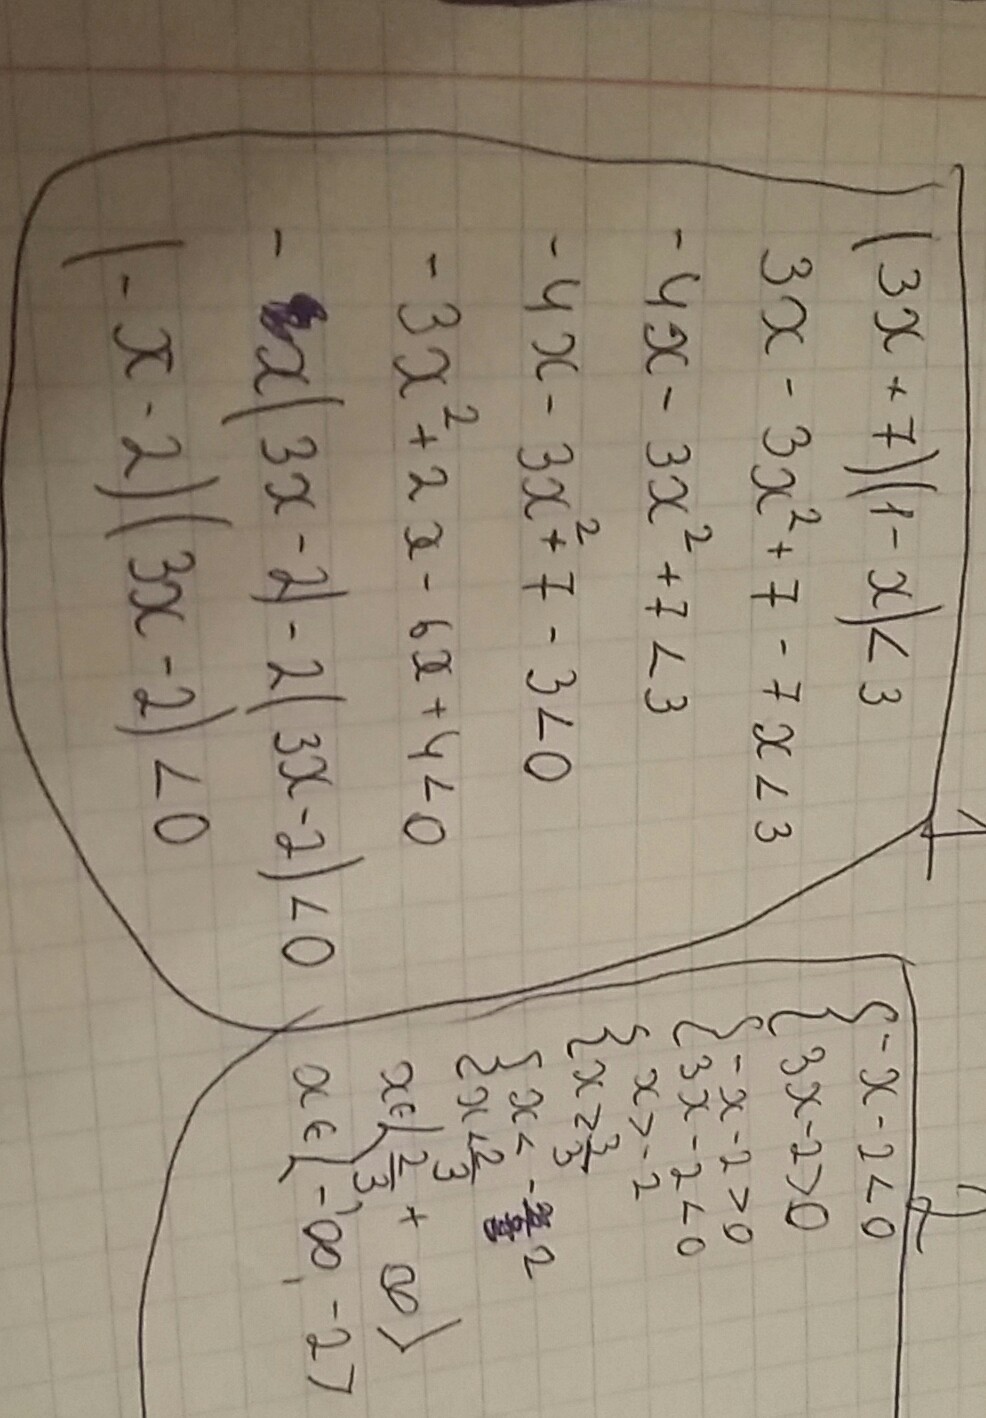 1
(3x+7)(1-x)<3
3x-3x²+7-7x<3
-4x-3x²+7<3
-4x-3x²+7-3<0
-3x²+2x-6x+4<0
-x(3x-2)-2(3x-2)<0
(-x-2)(3x-2)<0
2
{-x-2<0
{3x-2>0
{-x-2>0
{3x-2<0
{x>-2
{x>2/3
{x<-2
{x<2/3
x∈(2/3,+∞)
x∈(-∞,-2)